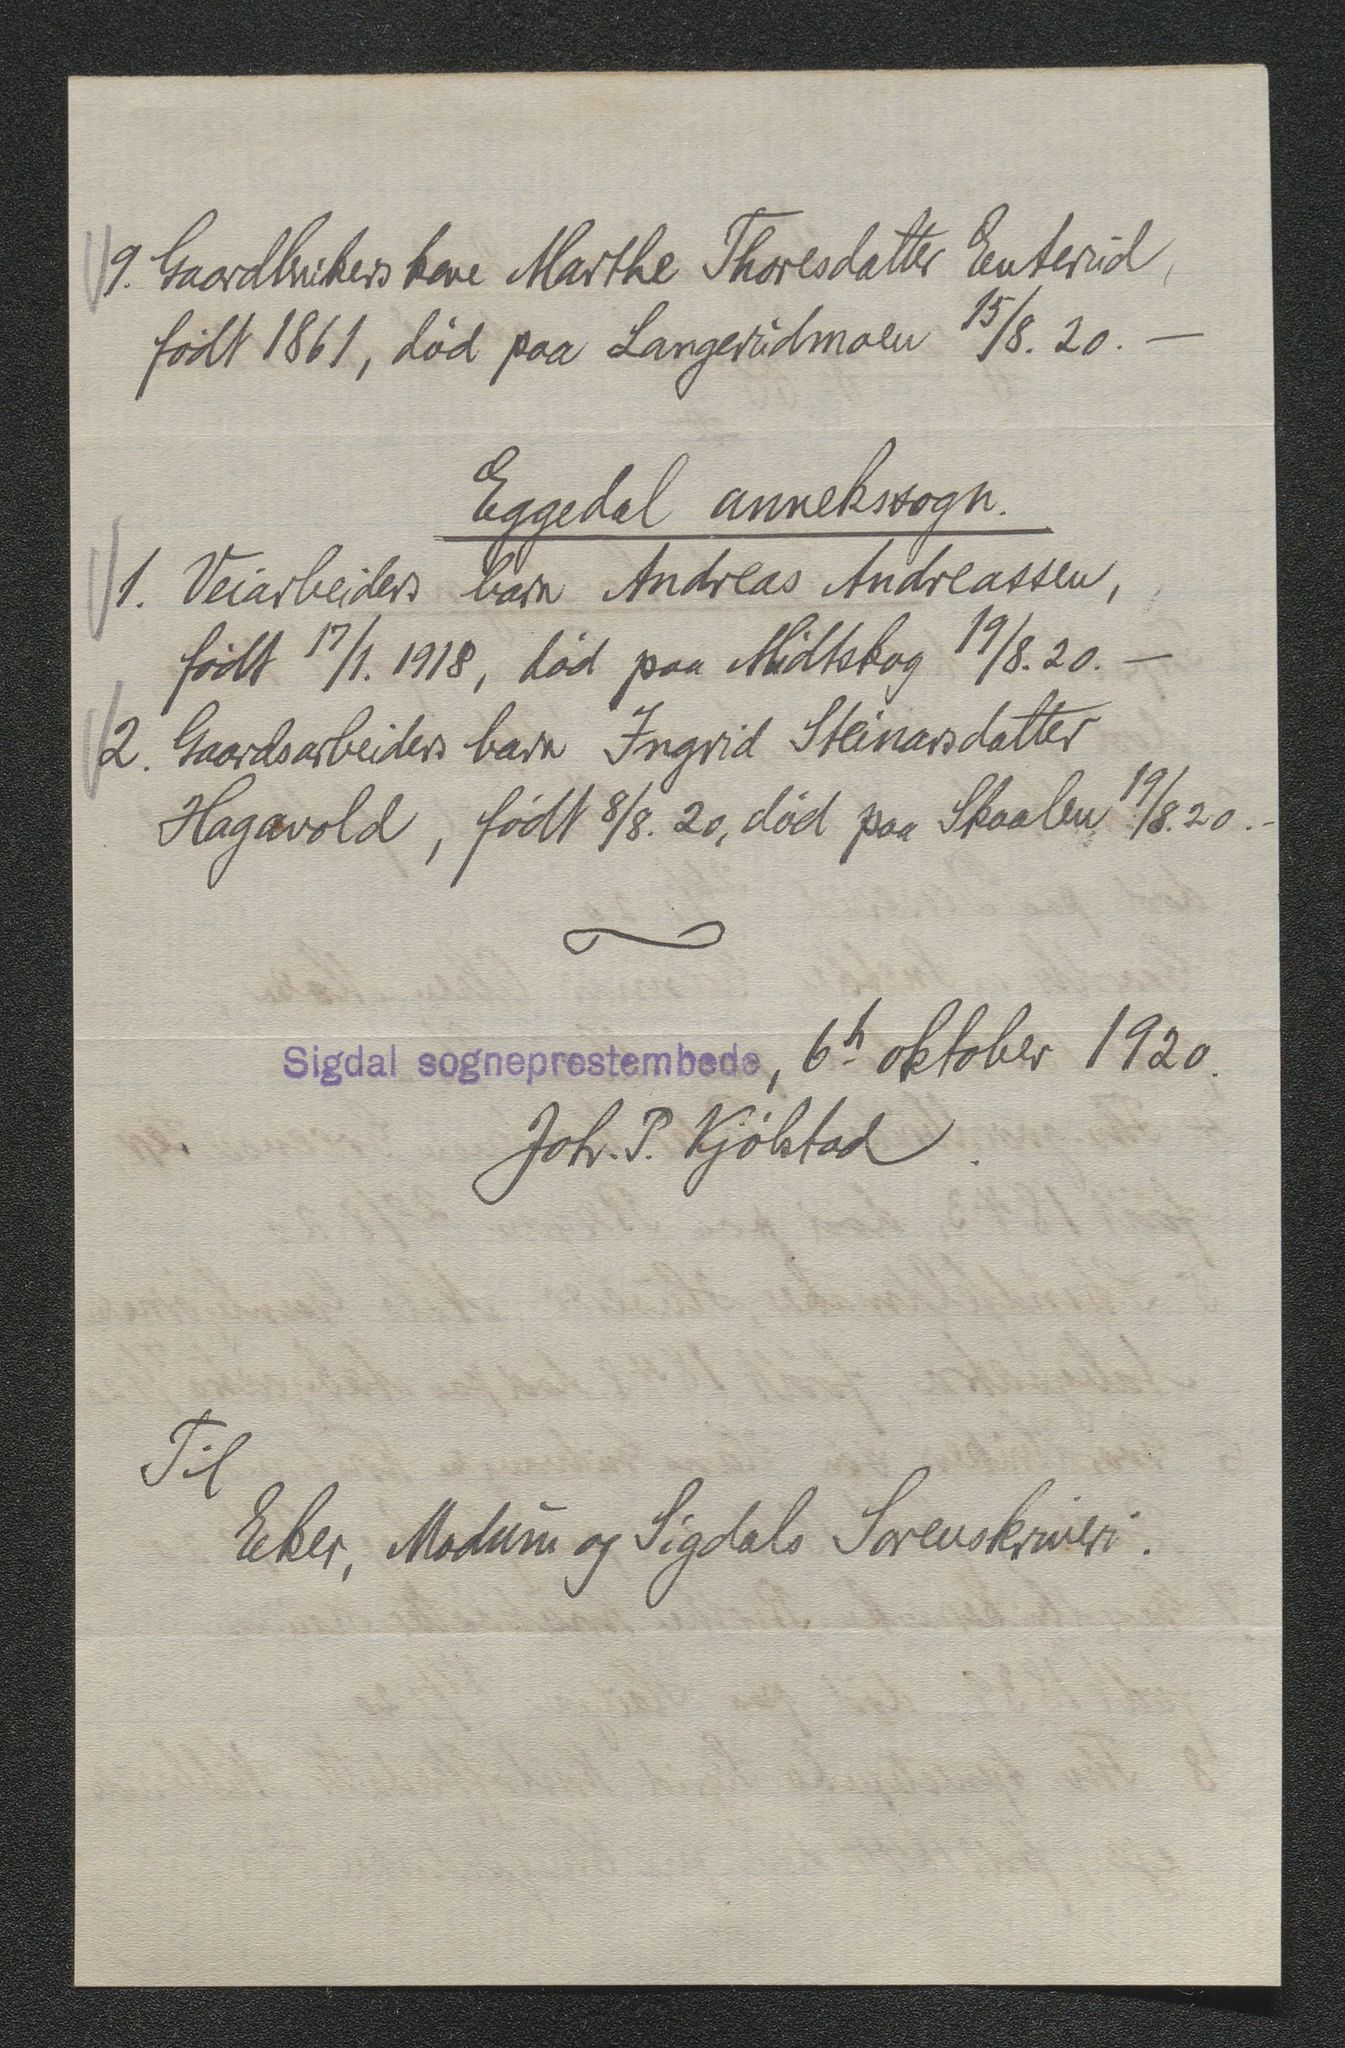 9. Gaardbrukers kone Marthe Thoresdatter Enterud,
født 1861, død paa Langerudmoen 15/8. 20. —
Eggedal annekssogn.
1. Veiarbeiders barn Andreas Andreassen,
født 17/1. 1918, død paa Midtskog 19/8. 20. —
2. Gaardsarbeiders barn Ingrid Steinarsdatter
Hagavold, født 8/8. 20, død paa Skaalen 19/8. 20. -
Sigdal sogneprestembede, 6h oktober 1920.
Joh. P. Kjølstad.
Til
Eker, Modum og Sigdals Sorenskriveri.